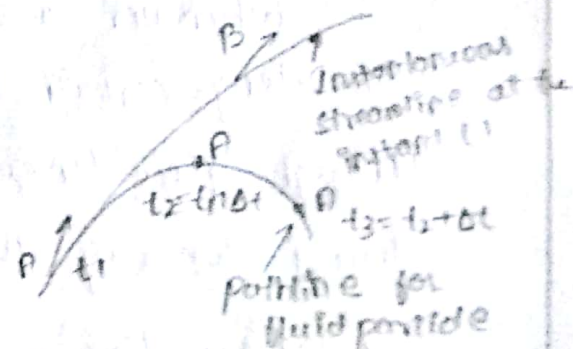 B
Instantaneous
streamline at the
instant t1
P
t2=t1+Δt
P
t3=t2+Δt
P
t1
Pathline for
fluid particle